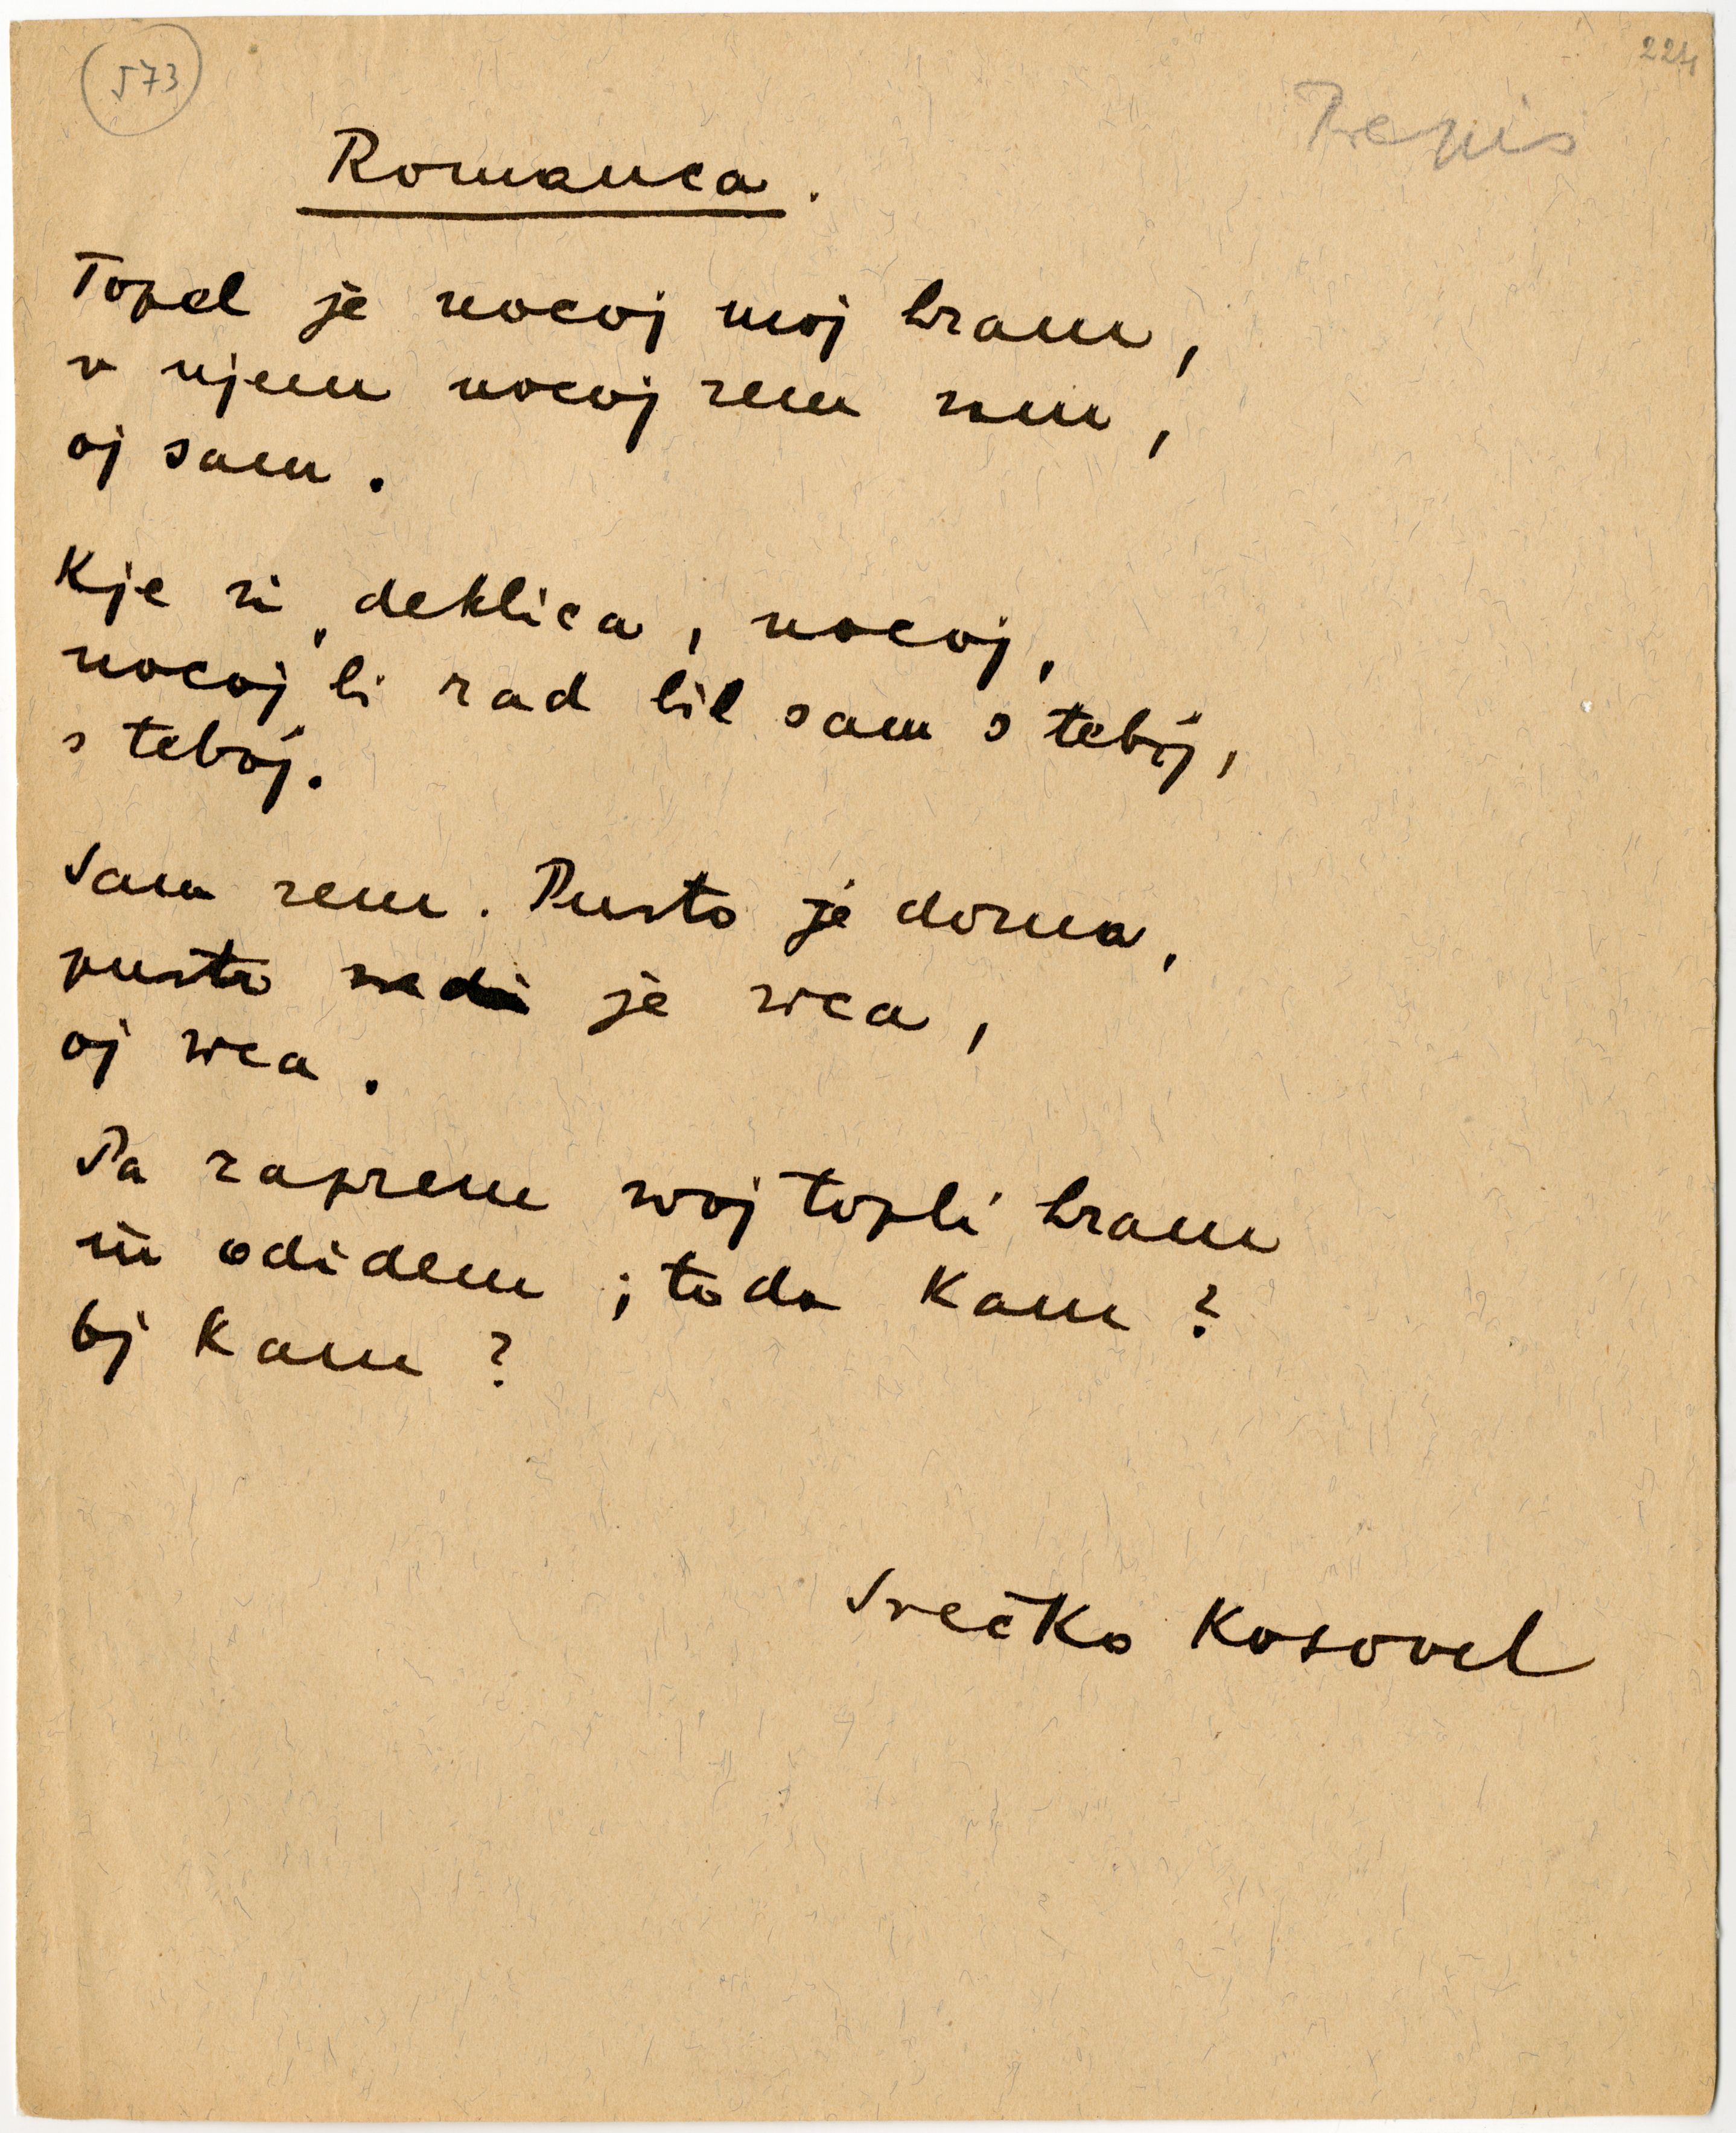 573
224
Prepis
Romanca.
Topel je nocoj moj hram,
v njem nocoj sem sam,
oj sam.
Kje si, deklica, nocoj,
nocoj bi rad bil sam s teboj,
s teboj.
Sam sem. Pusto je doma,
pusto sredi je srca,
oj srca.
Pa zaprem svoj topli hram
in odidem; toda kam?
oj kam?
Srečko Kosovel